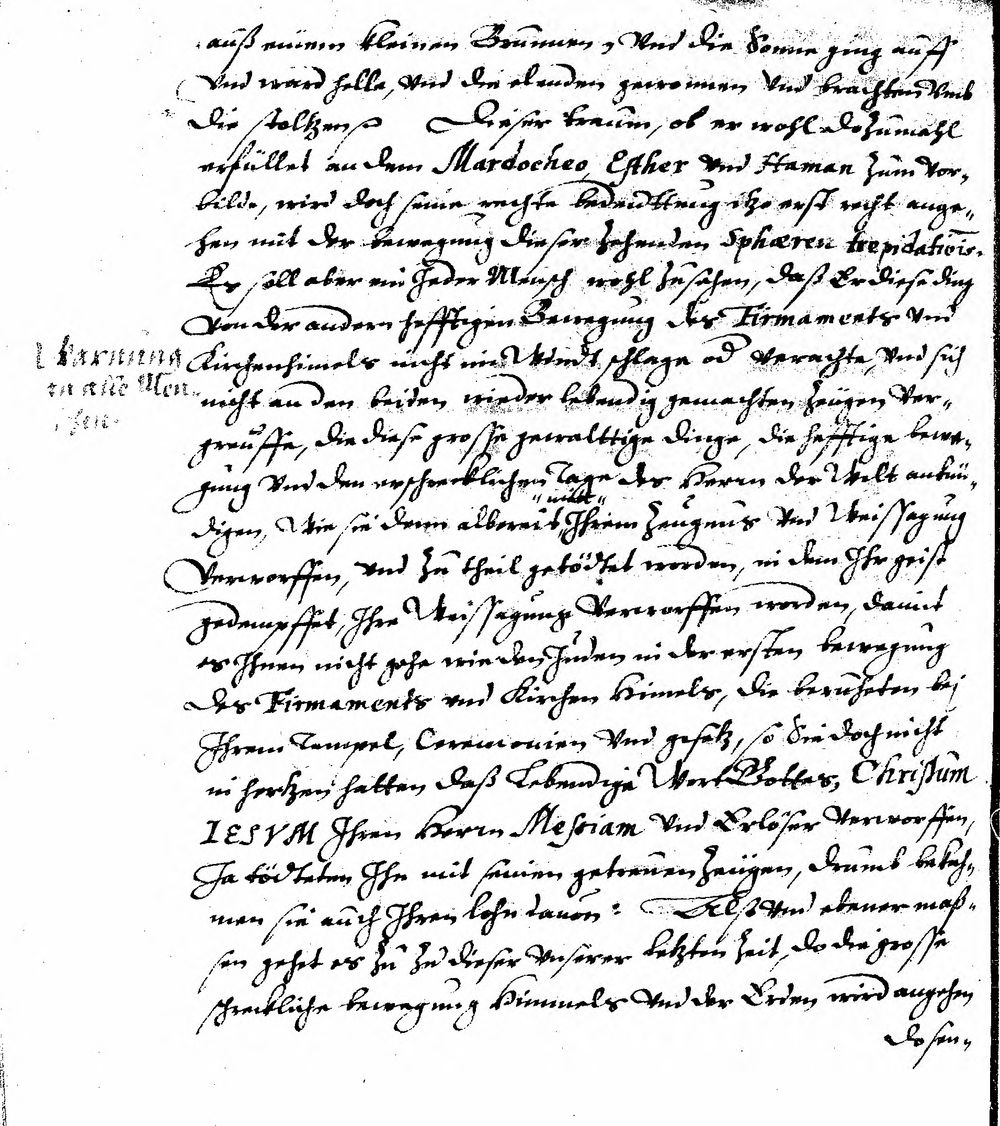 auß einem kleinen Brunnen, Vnd die Sonne ging auff
Vnd ward helle, Vnd die elenden gewonnen Vnd brachten Vmb
die stoltzen. Dieser traum, ob er wohl dozumahl
erfüllet an dem Mardocheo, Esther Vnd Haman zum Vor-
bilde, wird doch seine rechte bedeuttung itzo erst recht ange-
hen mit der bewegung dieser zehenden Sphæren trepidatiōis.
Es soll aber ein Jeder Mensch wohl zusehen, daß Er diese ding
Von der andern hefftigen Bewegung des Firmaments Vnd
Warnung
an alle Men-
schen.
Kirchenhimels nicht in Windt schlage od verachte, Vnd sich
nicht an den beiden wieder lebendig gemachten Zeugen Ver-
greuffe, die diese grosse gewalttige dinge, die hefftige bewe-
gung Vnd den erschrecklichen Tage des Herrn der Welt ankün-
digen, Wie sie denn albereit "mitt" Ihrem Zeugnus Vnd Weissagung
Verworffen, Vnd zu theil getödtet worden, in dem Ihr geist
gedempffet, Ihre Weissagung Verworffen worden, damit
es Ihnen nicht gehe wie den Juden in der ersten bewegung
des Firmaments Vnd Kirchen Himels, die beruheten bei
Ihrem Tempel, Ceremonien Vnd gesetz, so Sie doch nicht
in hertzen hatten daß Lebendige Wort Gottes, Christum
IESVM Ihren Herrn Messiam Vnd Erlöser Verworffen,
Ja tödteten Ihn mit seinen getreuen Zeugen, drumb bekah-
men sie auch Ihren lohn dauon: Alß Vnd ebener maß-
sen gehet es zu zu dieser Vnserer letzten Zeit, do die grosse
schreckliche bewegung Himmels Vnd der Erden wird angehen
do sen-